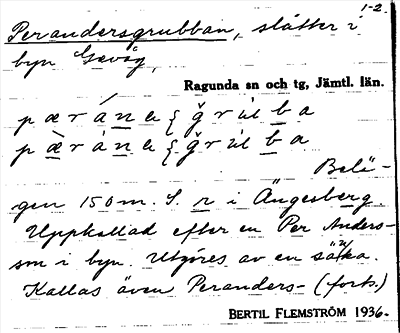 1-2.
Perandersgrubban, slåtter i
byn Gevåg,
Ragunda sn och tg, Jämtl. län.
Belä-
gen 150 m. S. r i Ängesberg.
Uppkallad efter en Per Anders-
son i byn. Utgöres av en sänka.
Kallas även Peranders- (forts.)
BERTIL FLEMSTRÖM 1936.